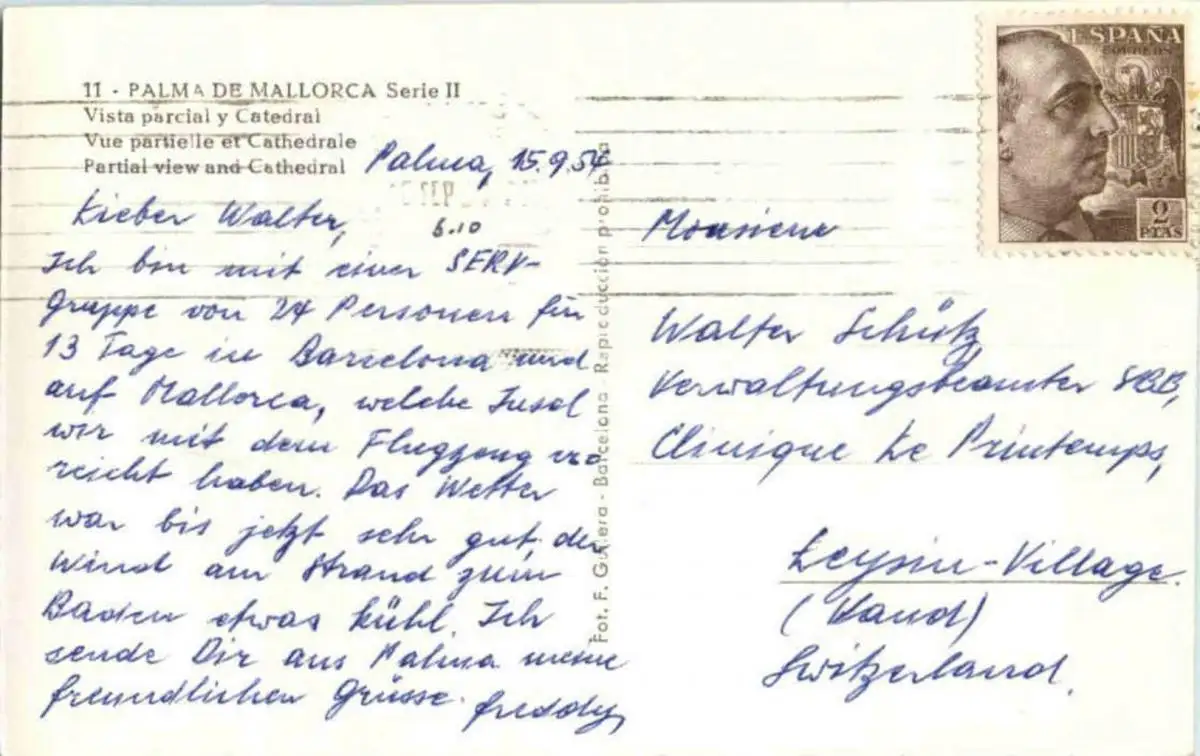 11 - PALMA DE MALLORCA Serie II
Vista parcial y Catedral
Vue partielle et Cathedrale
Partial view and Cathedral
Palma, 15.9.54
Lieber Walter,
6.10
Ich bin mit einer SERV-
gruppe von 24 Personen für
13 Tage in Barcelona und
auf Mallorca, welche Insel
wir mit dem Flugzeug er-
reicht haben. Das Wetter
war bis jetzt sehr gut, der
Wind am Strand zum
Baden etwas kühl. Ich
sende Dir aus Palma meine
freundlichen Grüsse. freddy
Fot. F. - Barcelona - Raproduccion prohibida
ESPAÑA
CORREOS
2
PTAS
SEP
Monsieur
Walter Schütz
Verwaltungsbeamter SBB,
Clinique Le Printemps,
Leysin-Village.
(Vaud)
Switzerland.